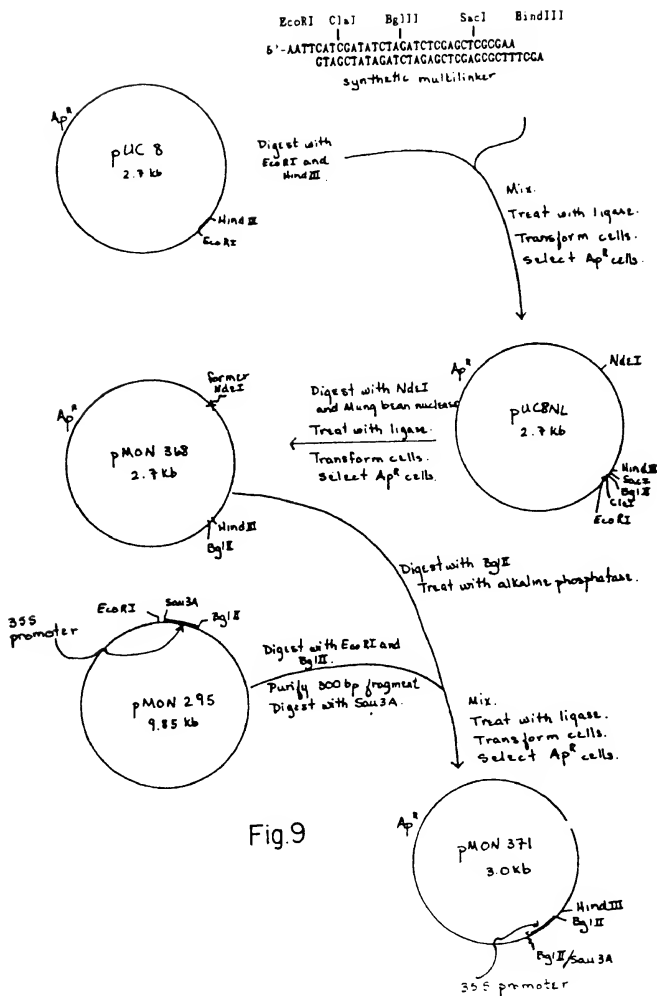 EcoRI ClaI BglII SacI BindIII
5'-AATTCATCGATATCTAGATCTCGAGCTCGCGAA
GTAGCTATAGATCTAGAGCTCGAGCGCTTTCGA
synthetic multilinker
Ap^R
pUC 8
2.7 kb
Hind III
EcoRI
Digest with
EcoRI and
Hind III
Mix.
Treat with ligase.
Transform cells.
Select Ap^R cells.
Ap^R
NdeI
pUC8NL
2.7 kb
Hind III
SacI
Bgl II
ClaI
EcoRI
Digest with NdeI
and Mung bean nuclease
Treat with ligase.
Transform cells.
Select Ap^R cells.
former
NdeI
Ap^R
pMON 368
2.7 kb
Hind III
Bgl II
Digest with Bgl II
Treat with alkaline phosphatase.
35S
promoter
EcoRI
Sau3A
Bgl II
pMON 295
9.85 kb
Digest with EcoRI and
Bgl II.
Purify 300 bp fragment
Digest with Sau3A.
Mix.
Treat with ligase.
Transform cells.
Select Ap^R cells.
Fig.9
Ap^R
pMON 371
3.0 kb
Hind III
Bgl II
Bgl II/Sau3A
35S promoter